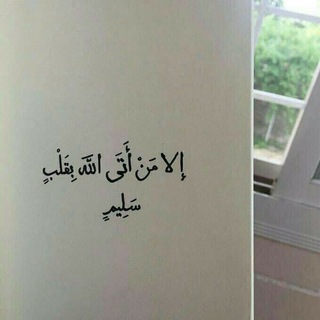 إلا مَنْ أَتَى اللَّه بِقَلْبٍ
سَلِيمٍ